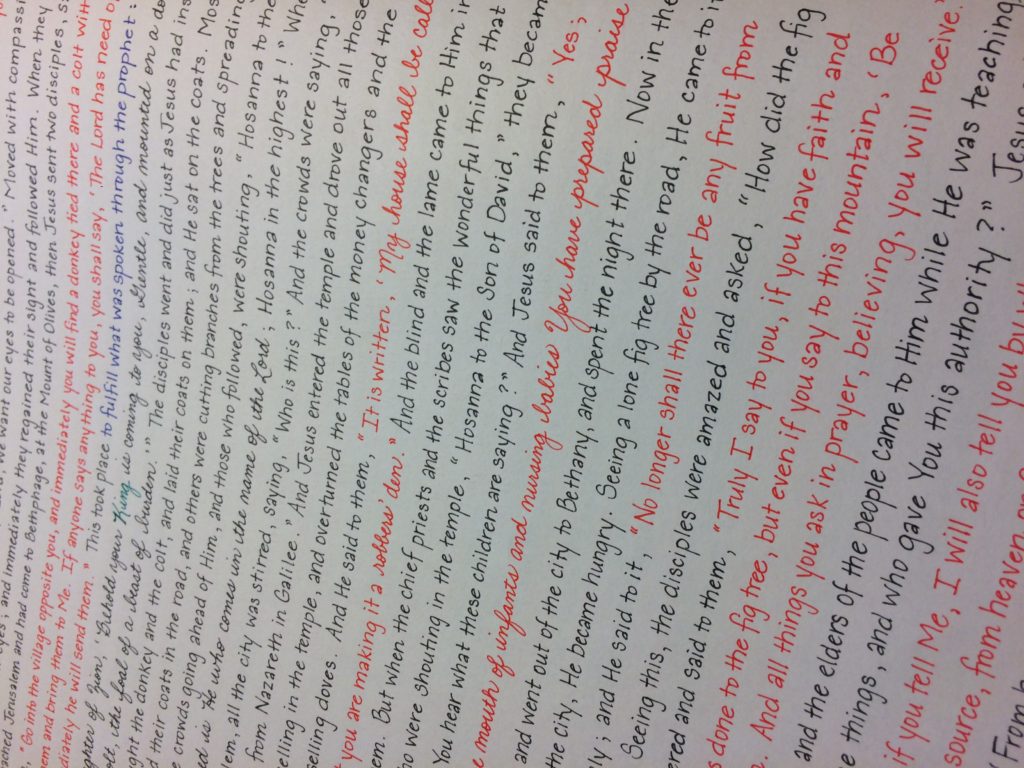 eyes, we want our eyes to be opened." Moved with compassi
eyes; and immediately they regained their sight and followed Him. When they
Jerusalem and had come to Bethphage, at the Mount of Olives, then Jesus sent two disciples, sa
"Go into the village opposite you, and immediately you will find a donkey tied there and a colt with
em and bring them to Me. If anyone says anything to you, you shall say, 'The Lord has need o
diately he will send them." This took place to fulfill what was spoken through the prophet:
ghter of Zion, 'Behold your King is coming to you, Gentle, and mounted on a do
olt, the foal of a beast of burden.'" The disciples went and did just as Jesus had ins
ght the donkey and the colt, and laid their coats on them; and He sat on the coats. Mos
d their coats in the road, and others were cutting branches from the trees and spreadin
e crowds going ahead of Him, and those who followed, were shouting, "Hosanna to the
ed is He who comes in the name of the Lord; Hosanna in the highest!" Whe
lem, all the city was stirred, saying, "Who is this?" And the crowds were saying,
from Nazareth in Galilee." And Jesus entered the temple and drove out all those
elling in the temple, and overturned the tables of the money changers and the
selling doves. And He said to them, "It is written, 'My house shall be call
t you are making it a robbers' den." And the blind and the lame came to Him in
em. But when the chief priests and the scribes saw the wonderful things that
ho were shouting in the temple, "Hosanna to the Son of David," they becam
You hear what these children are saying?" And Jesus said to them, "Yes;
e mouth of infants and nursing babies You have prepared praise
and went out of the city to Bethany, and spent the night there. Now in the
the city, He became hungry. Seeing a lone fig tree by the road, He came to i
ly; and He said to it, "No longer shall there ever be any fruit from
Seeing this, the disciples were amazed and asked, "How did the fig
ered and said to them, "Truly I say to you, if you have faith and
s done to the fig tree, but even if you say to this mountain, 'Be
. And all things you ask in prayer, believing, you will receive."
and the elders of the people came to Him while He was teaching
e things, and who gave You this authority?" Jesus
if you tell Me, I will also tell you by
source, from heaven or
"From h